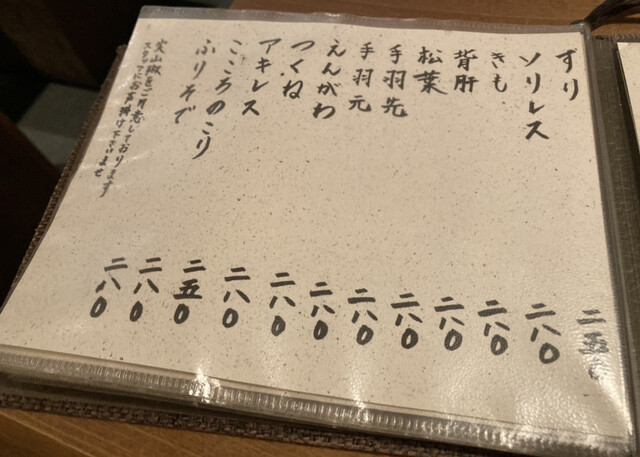 ずり 二五〇
ソリレス 二八〇
きも 二八〇
背肝 二八〇
松葉 二八〇
手羽先 二八〇
手羽元 二八〇
えんがわ 二八〇
つくね 二八〇
アキレス 二五〇
こころのこり 二八〇
ふりそで 二八〇
実山椒をご用意しております
スタッフにお声掛け下さいませ